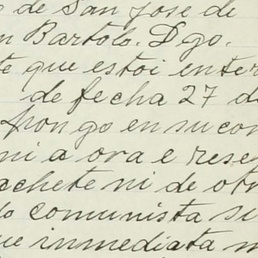 de San Jose de
n Bartolo. Dgo.
te que estoi enter
de fecha 27 d
pongo en su con
ni a ora e rese
achete ni de otr
do comunista si
ue inmediata m